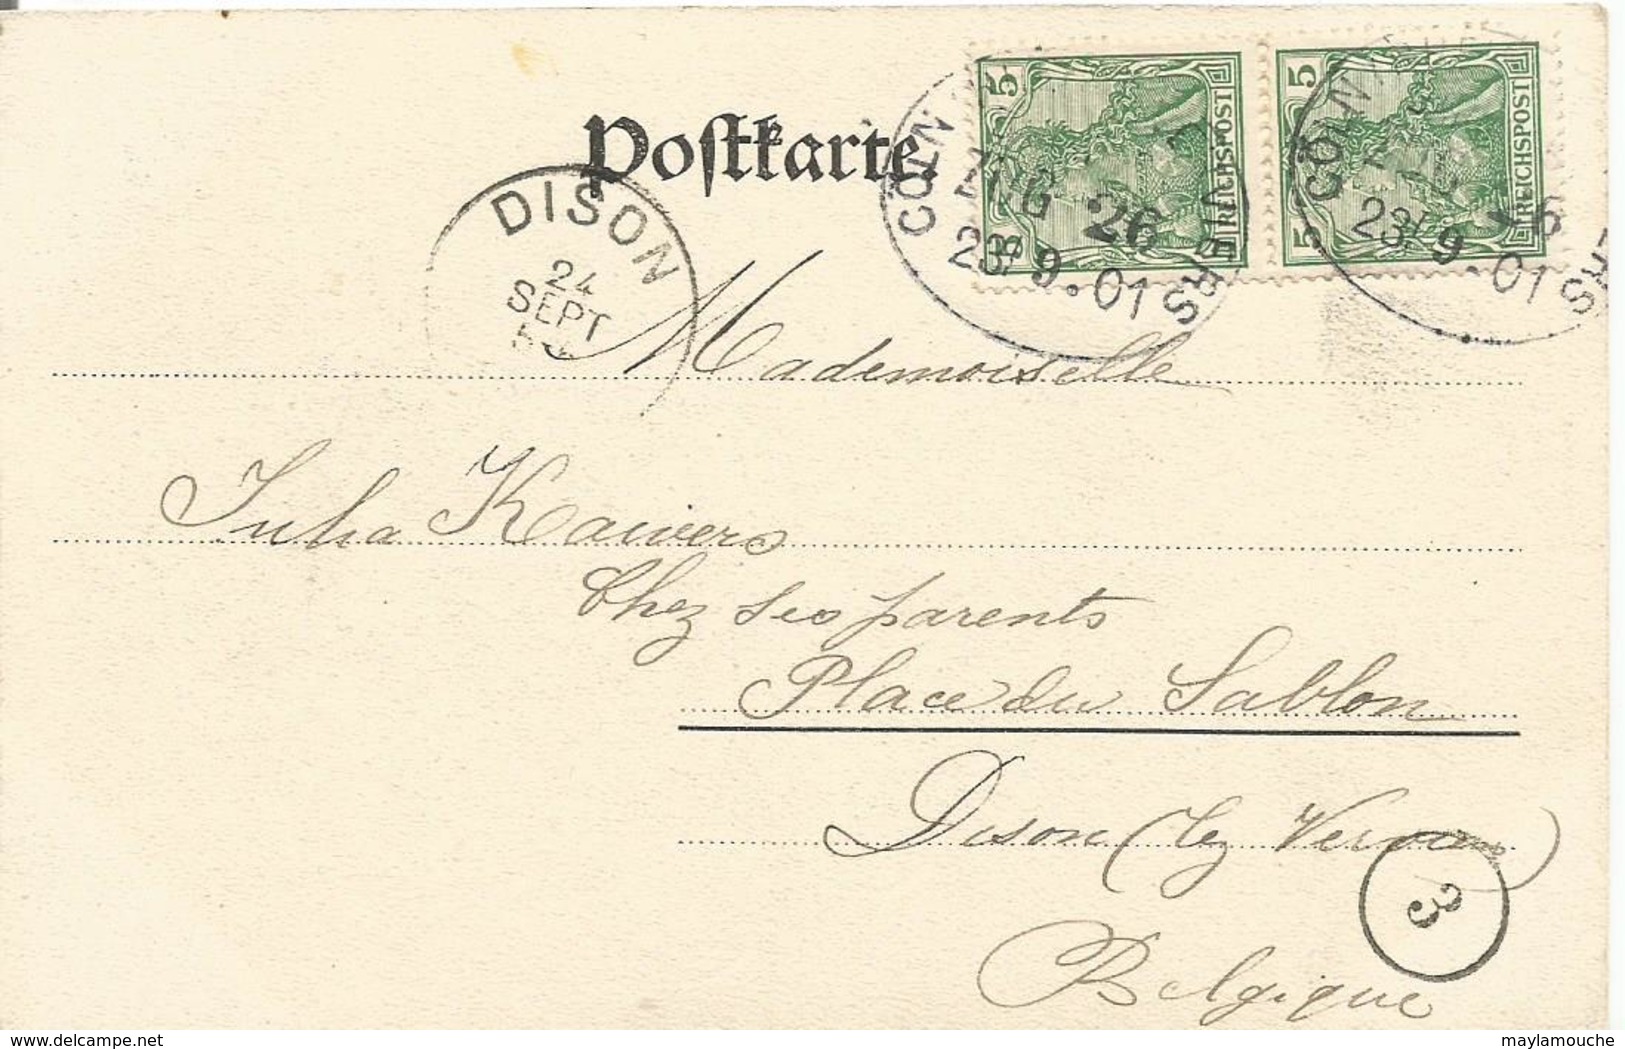 Postkarte.
5 5 REICHSPOST
5 5 REICHSPOST
CÖLN VERVIERS
ZUG 26
23/9.01
CÖLN
23/9.01
DISON
24
SEPT
Mademoiselle
Julia Kaivers
Chez ses parents
Place du Sablon
Dison (lez Verviers)
3
Belgique
delcampe.net
maylamouche